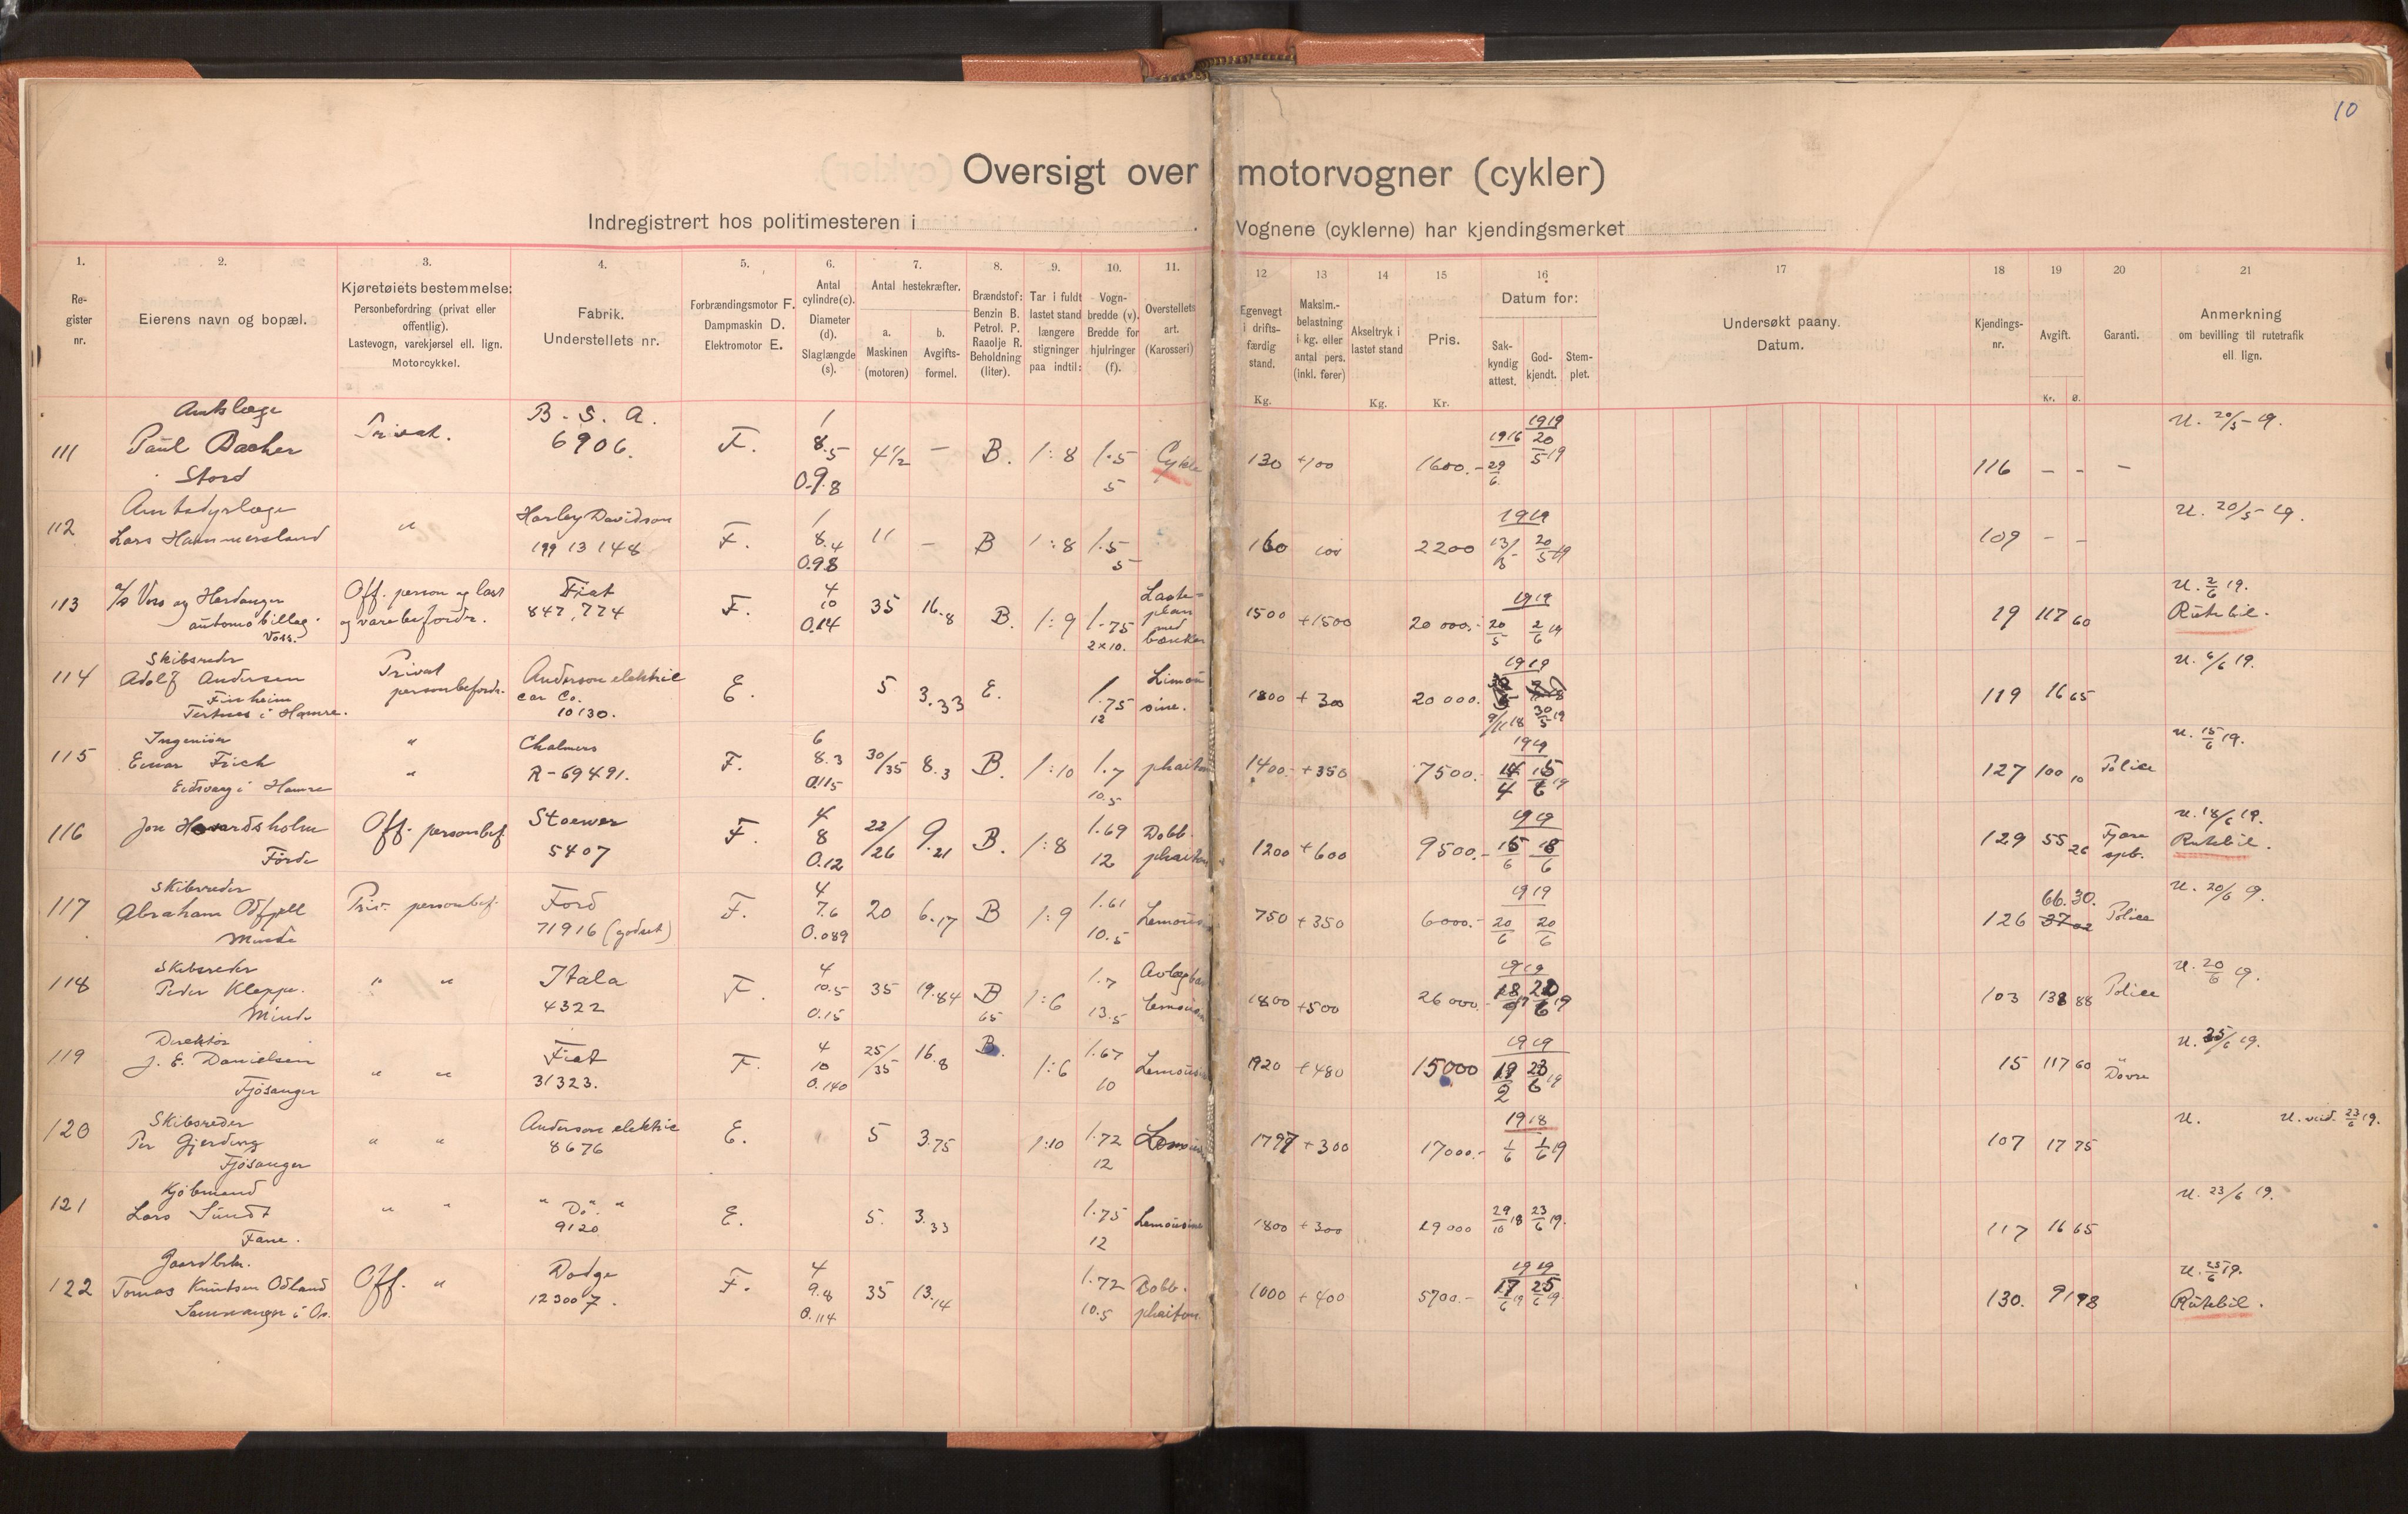 10
Oversigt over motorvogner (cykler)
Indregistrert hos politimesteren i . Vognene (cyklerne) har kjendingsmerket
1. Register nr.
2. Eierens navn og bopæl.
3. Kjøretøiets bestemmelse: Personbefordring (privat eller offentlig). Lastevogn, varekjørsel ell. lign. Motorcykkel.
4. Fabrik. Understellets nr.
5. Forbrændingsmotor F. Dampmaskin D. Elektromotor E.
6. Antal cylindre(c). Diameter (d). Slaglængde (s).
7. Antal hestekræfter. a. Maskinen (motoren) b. Avgifts-formel.
8. Brændstof: Benzin B. Petrol. P. Raaolje R. Beholdning (liter).
9. Tar i fuldt lastet stand længere stigninger paa indtil:
10. Vogn-bredde (v). Bredde for hjulringer (f).
11. Overstellets art. (Karosseri)
12 Egenvegt i drifts-færdig stand. Kg.
13 Maksim.-belastning i kg. eller antal pers. (inkl. fører)
14 Akseltryk i lastet stand Kg.
15 Pris. Kr.
16 Datum for: Sak-kyndig attest. God-kjendt. Stem-plet.
17 Undersøkt paany. Datum.
18 Kjendings-nr.
19 Avgift. Kr. Ø.
20 Garanti.
21 Anmerkning om bevilling til rutetrafik ell. lign.
111 Amtslæge Paul Backer Stord Privat. B.S.A. 6906. F. 1 8.5 0.9.8 4½ — B. 1:8 1.5 5 Cykle 130 +100 1600.- 1916 29/6 1919 20/5 19 116 — - — U. 20/5-19.
112 Amtsdyrlæge Lars Hammersland " Harley Davidson 199 13148 F. 1 8.4 0.98 11 — B 1:8 1.5 5 160 100 2200 1919 13/5 20/5 19 109 - - U. 20/5-19.
113 A/S Vors og Hardanger automobillag. Voss. Off. person og last og varebefordr. Fiat 847,774 F. 4 10 0.14 35 16.8 B. 1:9 1.75 2x10. Lasteplan med bænker 1500 +1500 20000.- 1919 20/5 2/6 19 19 117 60 U. 2/6 19. Rutebil.
114 Skibsreder Adolf Andersen Finheim Tertnes i Hamre. Privat personbefordr. Anderson elektric car Co. 10130. E. 5 3.33 E. 1.75 12 Limousine. 1800 +300 20000. 1919 9/11 18 30/5 19 119 16 65 U. 6/6 19.
115 Ingeniør Einar Frich Eidsvaag i Hamre " " Chalmers R-69491. F. 6 8.3 0.115 30/35 8.3 B. 1:10 1.7 10.5 phaiton 1400.- +350 7500.- 1919 14/4 15/6 19 127 100 10 Police U. 15/6 19.
116 Jon Havardsholm Förde Off. personbef Stoewer 5407 F. 4 8 0.12 22/26 9.21 B. 1:8 1.69 12 Dobb. phaiton 1200 +600 9500.- 1919 15/6 18/6 129 55 26 U. 18/6 19. Rutebil.
117 Skibsreder Abraham Odfjell Minde Priv. personbef. Ford 71916 (godset) F. 4 7.6 0.089 20 6.17 B 1:9 1.61 10.5 Lemousin 750 +350 6000.- 1919 20/6 20/6 126 66.30. 37 02 Police U. 20/6 9.
118 Skibsreder Peder Kleppe. Minde " " Itala 4322 F. 4 10.5 0.15 35 19.84 B 65 1:6 1.7 13.5 Lemousin 1800 +500 26000.- 1919 103 138 88 Police U. 20/6 19.
119 Direktör J. E. Danielsen Fjösanger " " Fiat 31323. F. 4 10 0.140 25/35 16.8 B. 1:6 1.67 10 Lemousin 1920 +480 15000 1919 19/2 23/6 19 15 117 60 " Dovre U. 25/6 19.
120 Skibsreder Per Gjerding Fjösanger " " Anderson elektric 8676 E. 5 3.75 1:10 1.72 12 Lemousin 1797 +300 17000.- 1918 1/6 1/6 19 107 17 75 U. U. veid. 23/6 19.
121 Kjöbmand Lars Sundt Fane. " " " Do. " 9120 E. 5. 3.33 1.75 12 Lemousine 1800 +300 19000 29/10 18 23/6 19. 117 16 65 U. 23/6 19.
122 Gaardbr. Tomas Knudsen Ødland Samnanger i Os. Off. " Dodge 123007. F. 4 9.8 0.114 35 13.14 1.72 10.5 Dobb. phaiton 1000 +400 5700.- 1919 17/6 19 25/6 19. 130. 91 98 U. 25/6 19. Rutebil.